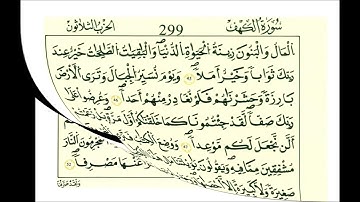 سُورَةُ الكَهْفِ 299 الحِزْبُ الثَّلَاثُونَ
اَلْمَالُ وَالْبَنُونَ زِينَةُ الْحَيَوٰةِ الدُّنْيَا وَالْبَٰقِيَٰتُ الصَّٰلِحَٰتُ خَيْرٌ عِندَ
رَبِّكَ ثَوَابًا وَخَيْرٌ أَمَلًا وَيَوْمَ نُسَيِّرُ الْجِبَالَ وَتَرَى الْأَرْضَ
بَارِزَةً وَحَشَرْنَٰهُمْ فَلَمْ نُغَادِرْ مِنْهُمْ أَحَدًا وَعُرِضُوا عَلَىٰ
رَبِّكَ صَفًّا لَّقَدْ جِئْتُمُونَا كَمَا خَلَقْنَٰكُمْ أَوَّلَ مَرَّةٍ
أَلَّن نَّجْعَلَ لَكُم مَّوْعِدًا وَوُضِعَ النَّارَ
مُشْفِقِينَ مِمَّا فِيهِ وَيَقُولُونَ عَنْهَا مَصْرِفًا
صَغِيرَةً وَلَا كَبِيرَةً